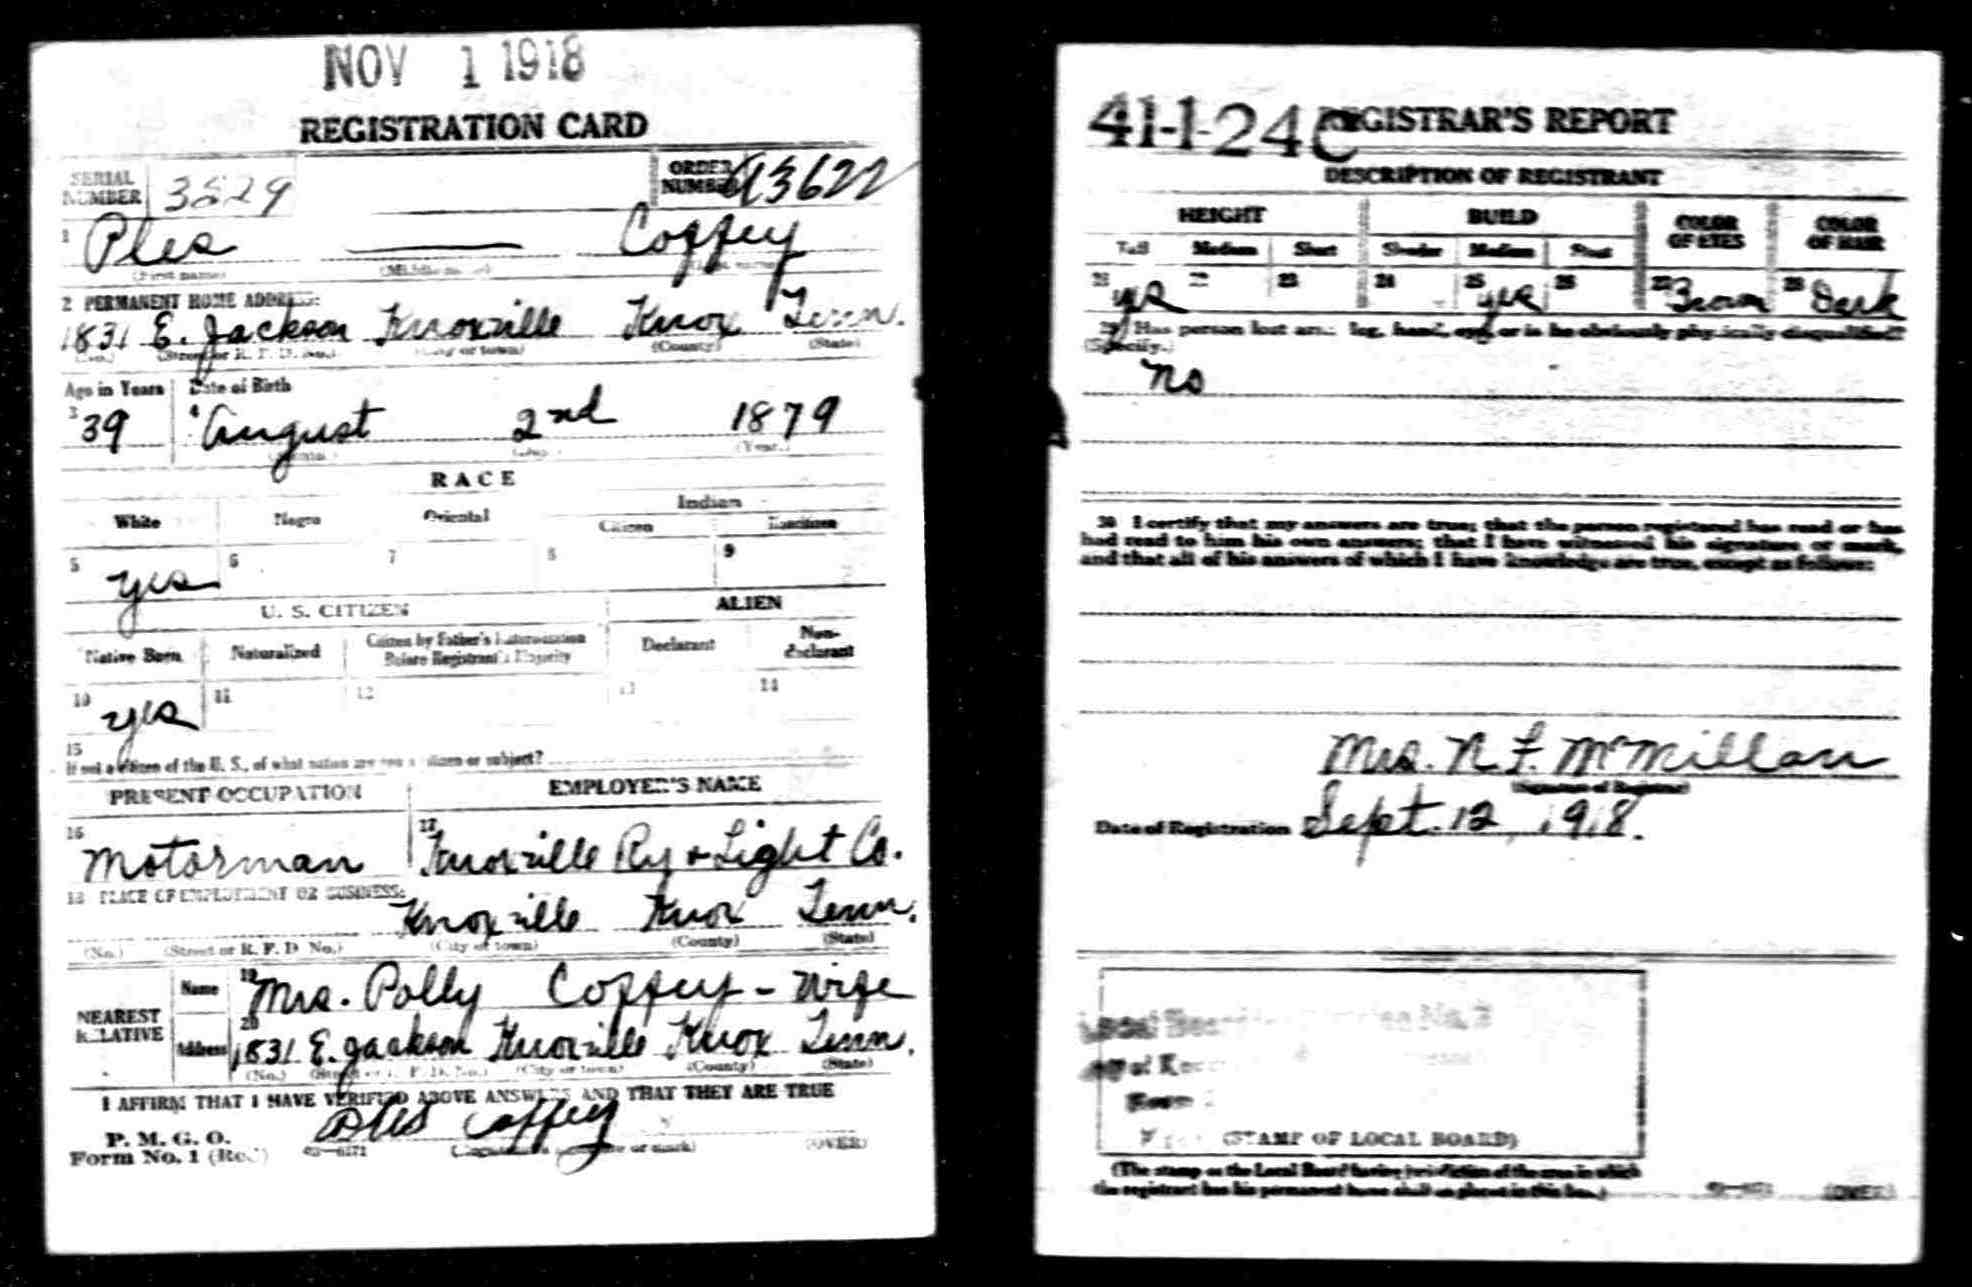 NOV 1 1918
REGISTRATION CARD
SERIAL NUMBER 3829 ORDER NUMBER A13622
1 Ples ——— Coffey
(First name) (Middle name) (Last name)
2 PERMANENT HOME ADDRESS:
1831 E. Jackson Knoxville Knox Tenn.
(No.) (Street or R. F. D. No.) (City or town) (County) (State)
Age in Years Date of Birth
3 39 4 August 2nd 1879
(Month.) (Day.) (Year.)
RACE
White Negro Oriental Indian
Citizen Noncitizen
5 yes 6 7 8 9
U. S. CITIZEN ALIEN
Native Born Naturalized Citizen by Father's Naturalization Before Registrant's Majority Declarant Non-declarant
10 yes 11 12 13 14
15
If not a citizen of the U. S., of what nation are you a citizen or subject?
PRESENT OCCUPATION EMPLOYER'S NAME
16 Motorman 17 Knoxville Ry & Light Co.
18 PLACE OF EMPLOYMENT OR BUSINESS:
Knoxville Knox Tenn.
(No.) (Street or R. F. D. No.) (City or town) (County) (State)
NEAREST RELATIVE
Name 19 Mrs. Polly Coffey - Wife
Address 20 1831 E. Jackson Knoxville Knox Tenn.
(No.) (Street or R. F. D. No.) (City or town) (County) (State)
I AFFIRM THAT I HAVE VERIFIED ABOVE ANSWERS AND THAT THEY ARE TRUE
P. M. G. O.
Form No. 1 (Red) Ples Coffey (OVER)
(Registrant's signature or mark)
41-1-24 C REGISTRAR'S REPORT
DESCRIPTION OF REGISTRANT
HEIGHT BUILD COLOR OF EYES COLOR OF HAIR
Tall Medium Short Slender Medium Stout
21 yes 22 23 24 25 yes 26 27 Brown 28 Dark
29 Has person lost arm, leg, hand, eye, or is he obviously physically disqualified?
(Specify.)
No
30 I certify that my answers are true; that the person registered has read or has
had read to him his own answers; that I have witnessed his signature or mark,
and that all of his answers of which I have knowledge are true, except as follows:
Mrs. N. F. McMillan
(Signature of Registrar)
Date of Registration Sept. 12, 1918.
Local Board No. 2
(STAMP OF LOCAL BOARD)
(The stamp of the Local Board having jurisdiction of the area in which
the registrant has his permanent home shall be placed in this box.)
(OVER)